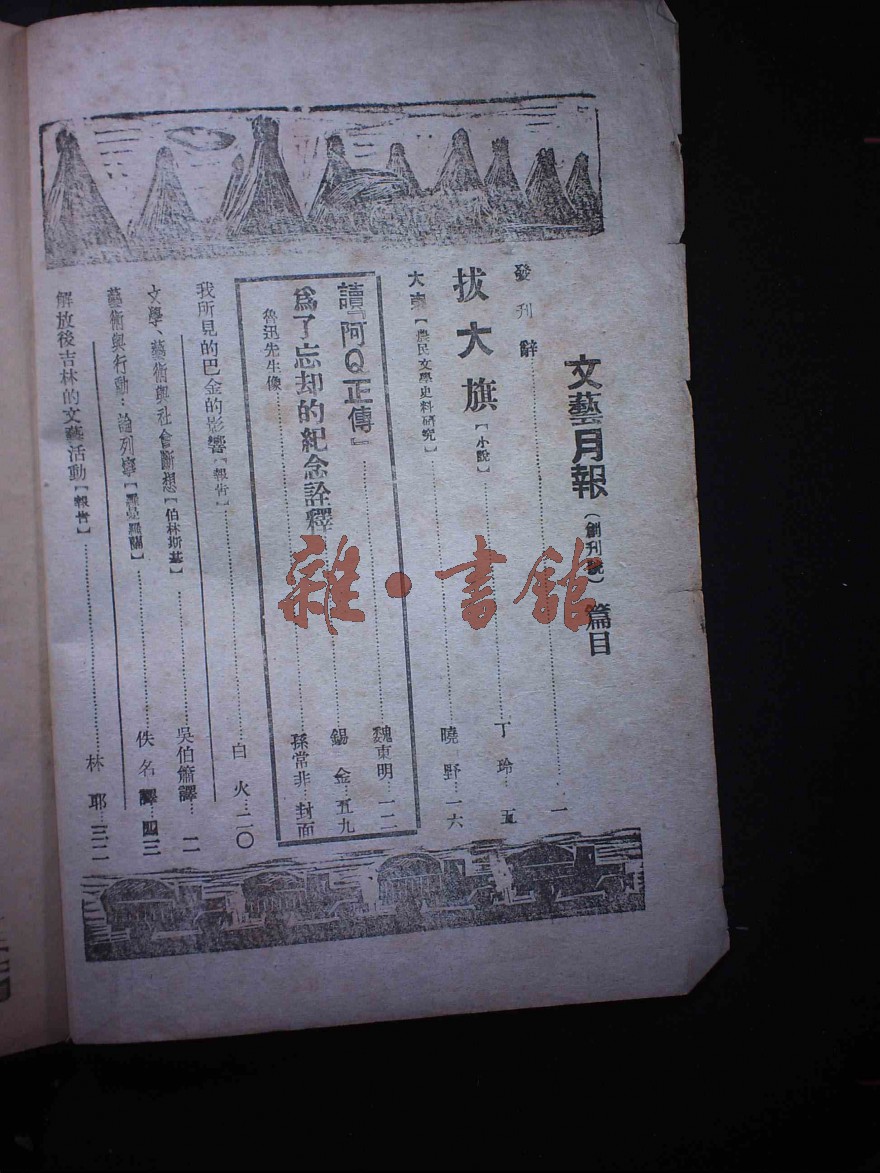 文藝月報（創刊號）篇目
發刊辭……一
拔大旗【小說】……丁玲…五
大東【農民文學史料研究】……曉野…一六
讀『阿Q正傳』……魏東明…一二
爲了忘却的紀念詮釋……錫金…五九
魯迅先生像……孫常非…封面
我所見的巴金的影響【報告】……白火…二〇
文學、藝術與社會斷想【伯林斯基】……吳伯簫譯…一一
藝術與行動：論列寧【羅曼羅蘭】……佚名譯…四三
解放後吉林的文藝活動【報告】……林耶…三二
雜·書館